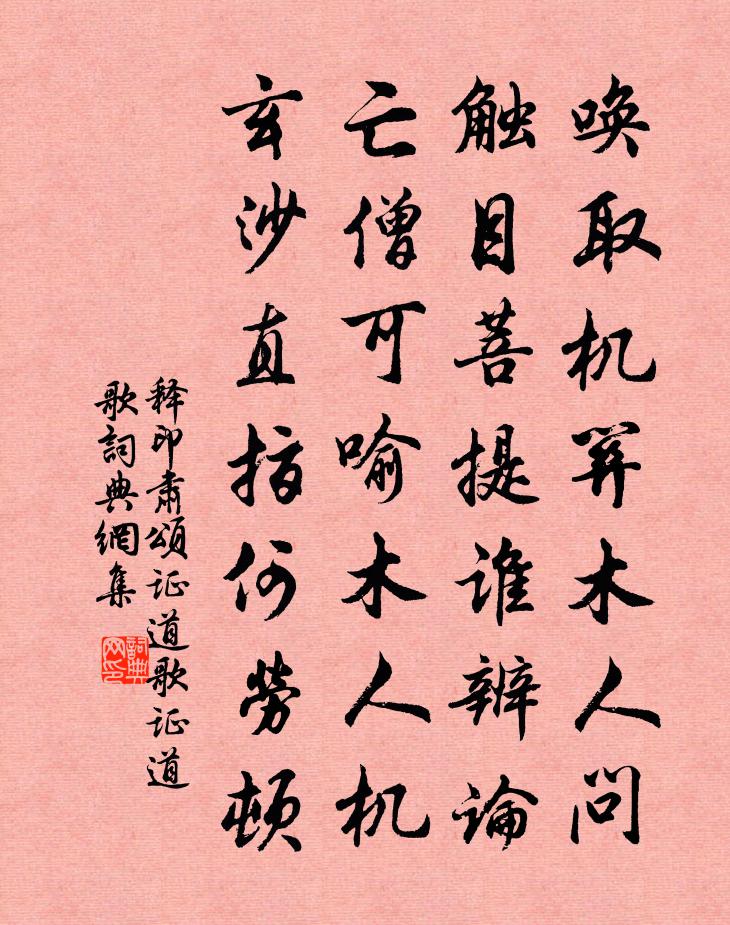 唤取机关木人问
触目菩提谁辨论
亡僧可喻木人机
玄沙直指何劳顿
释印肃颂证道歌证道
歌詞典網集
詞典
网印